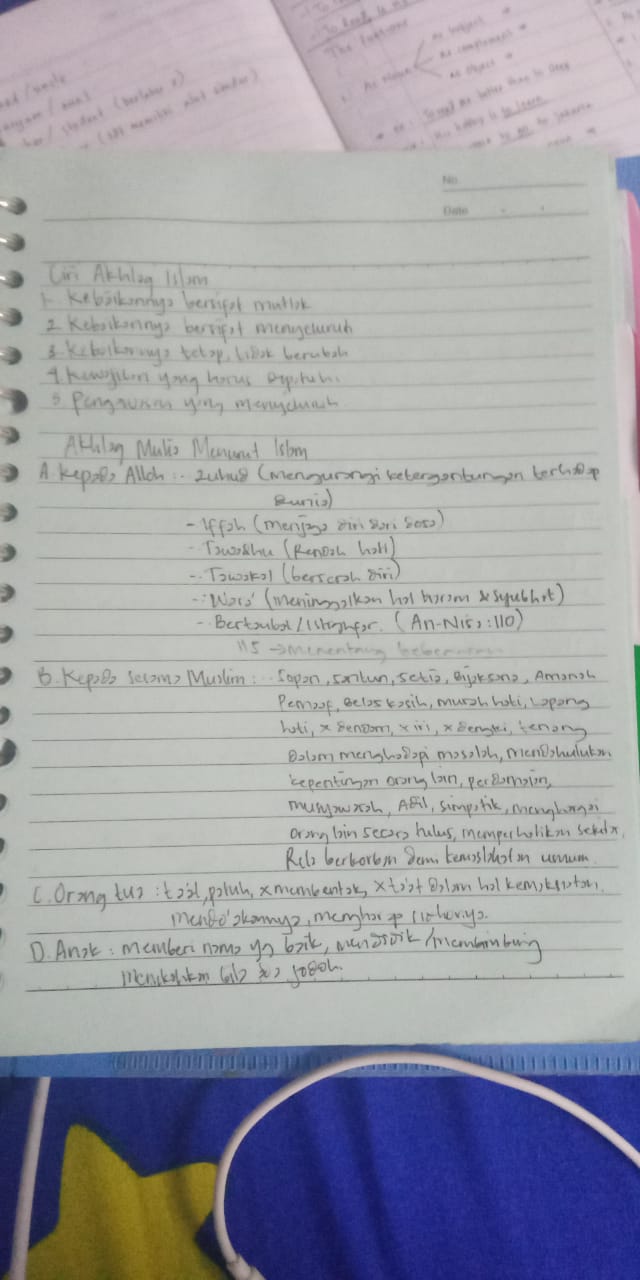 To
The functions
As noun
as subject
as complement
as object
to learn
No
Date
Ciri Akhlaq Islam
1. Kebaikannya bersifat mutlak
2. Kebaikannya bersifat menyeluruh
3. Kebaikannya tetap, tidak berubah
4. Kewajiban yang harus dipatuhi.
5. Pengawasan yang menyeluruh.
Akhlaq Mulia Menurut Islam
A. Kepada Allah : - Zuhud (mengurangi ketergantungan terhadap
dunia)
- Iffah (menjaga diri dari dosa)
- Tawadhu (Rendah hati)
- Tawakal (berserah diri)
- Wara' (meninggalkan hal haram & syubhat)
- Bertaubat / Istighfar. (An-Nisa : 110)
115 → Menentang kebenaran
B. Kepada sesama Muslim : Sopan, santun, setia, bijaksana, Amanah
Pemaaf, belas kasih, murah hati, lapang
hati, x dendam, x iri, x dengki, tenang
dalam menghadapi masalah, mendahulukan
kepentingan orang lain, perdamaian,
musyawarah, Adil, simpatik, menghargai
orang lain secara tulus, memperhatikan
Rela berkorban demi kemaslahatan umum.
C. Orang tua : ta'at, patuh, x membentak, x ta'at dalam hal kemaksiatan,
mendo'akannya, mengharap ridhonya.
D. Anak : memberi nama yg baik, mendidik / membimbing
Menikahkan bila ada jodoh.